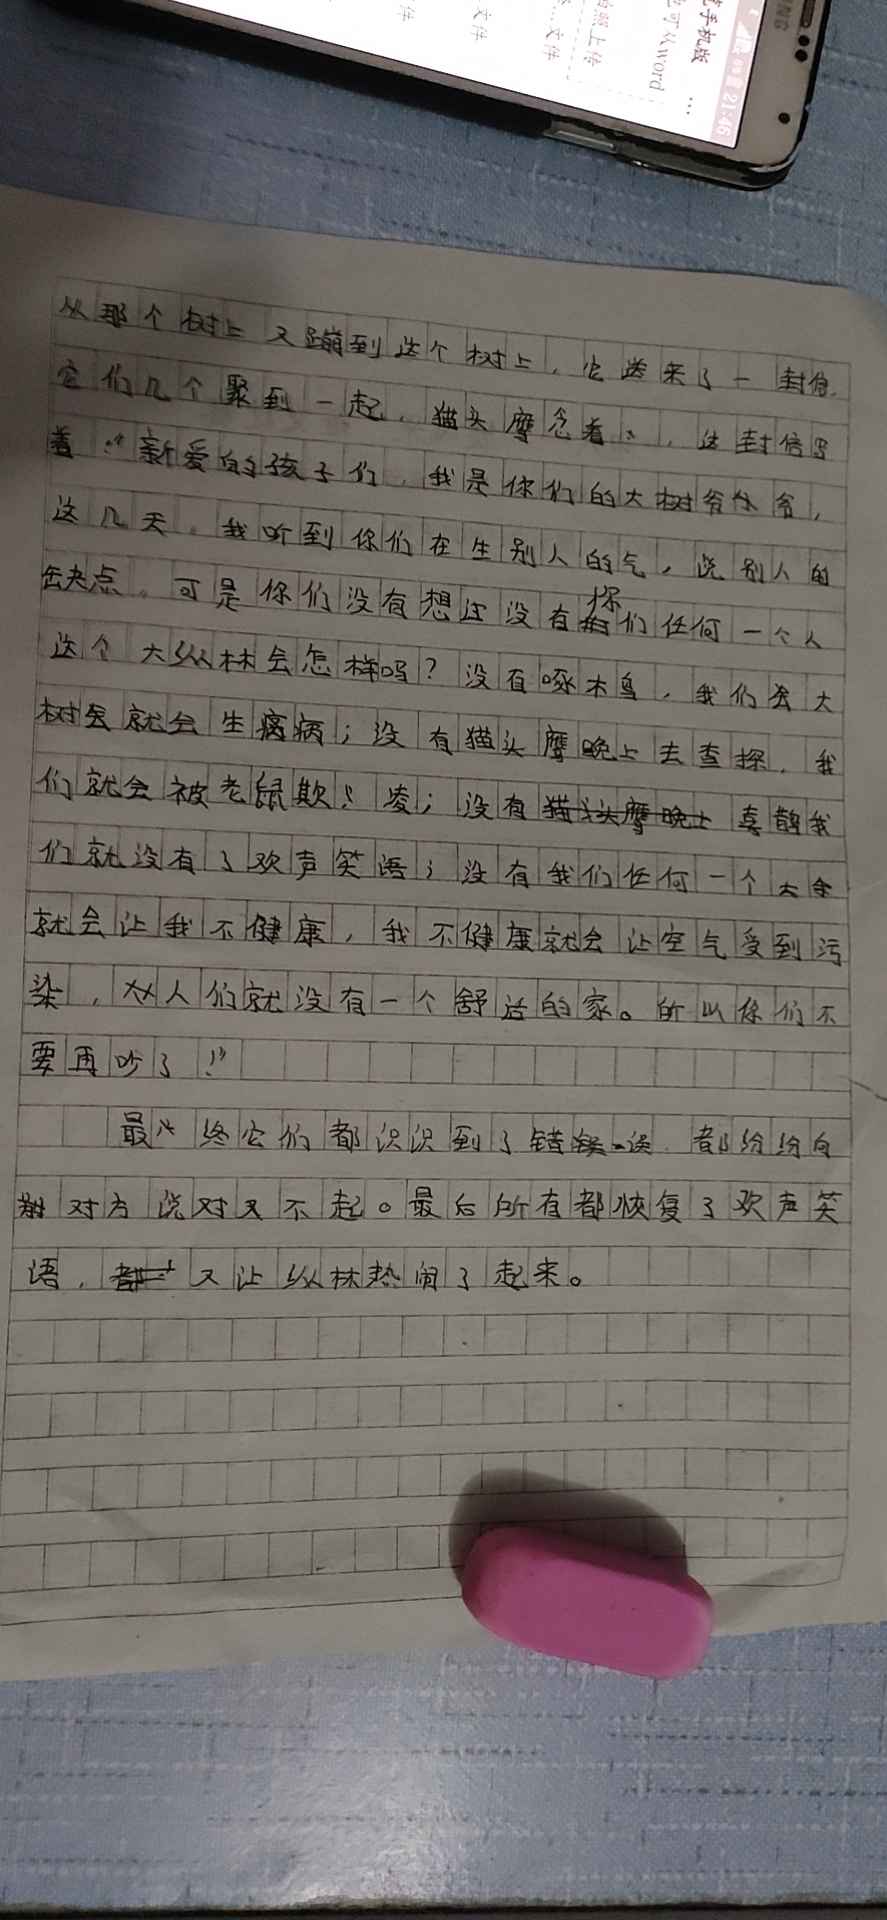 笔手机版 ...
也可从word
拍照上传
文件
文件
件
21:46
从那个树上又蹦到这个树上，它送来了一封信.
它们几个聚到一起，猫头摩念着：，这封信写
着：“新爱的孩子们，我是你们的大树爷爷，
这几天。我听到你们在生别人的气，说别人的
缺点。可是你们没有想过没有你们任何一个人
这个大纵林会怎样吗？没有啄木鸟，我们大
树就会生病；没有猫头摩晚上去查探，我
们就会被老鼠欺凌；没有喜鹊我
们就没有了欢声笑语；没有我们任何一个大
就会让我不健康，我不健康就会让空气受到污
染，人们就没有一个舒适的家。所以你们不
要再吵了！”
最终它们都识识到了错误.都纷纷向
对方说对不起。最后所有都恢复了欢声笑
语，又让纵林热闹了起来。